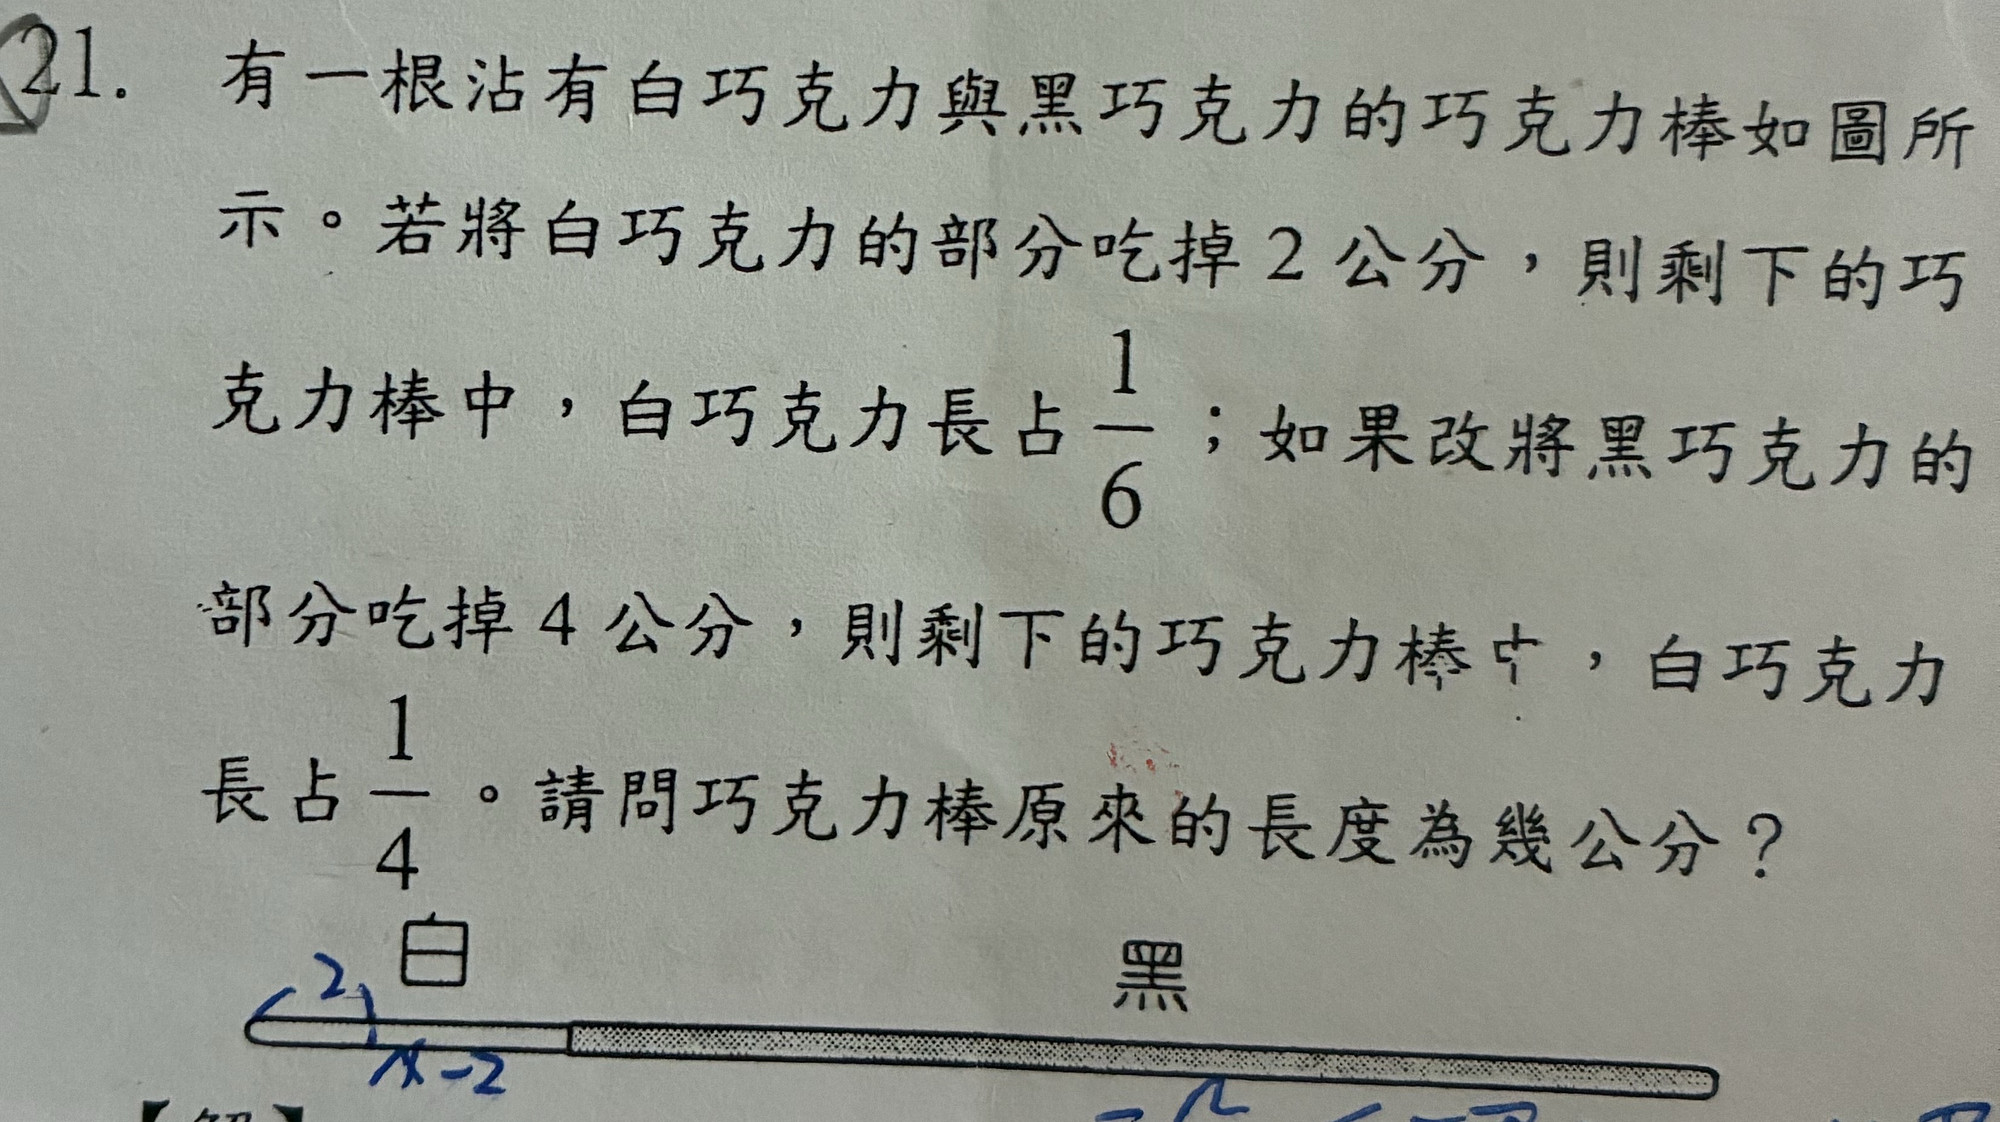 21. 有一根沾有白巧克力與黑巧克力的巧克力棒如圖所
示。若將白巧克力的部分吃掉 2 公分，則剩下的巧
克力棒中，白巧克力長占 1/6；如果改將黑巧克力的
部分吃掉 4 公分，則剩下的巧克力棒中，白巧克力
長占 1/4。請問巧克力棒原來的長度為幾公分？
白
黑
2
x-2